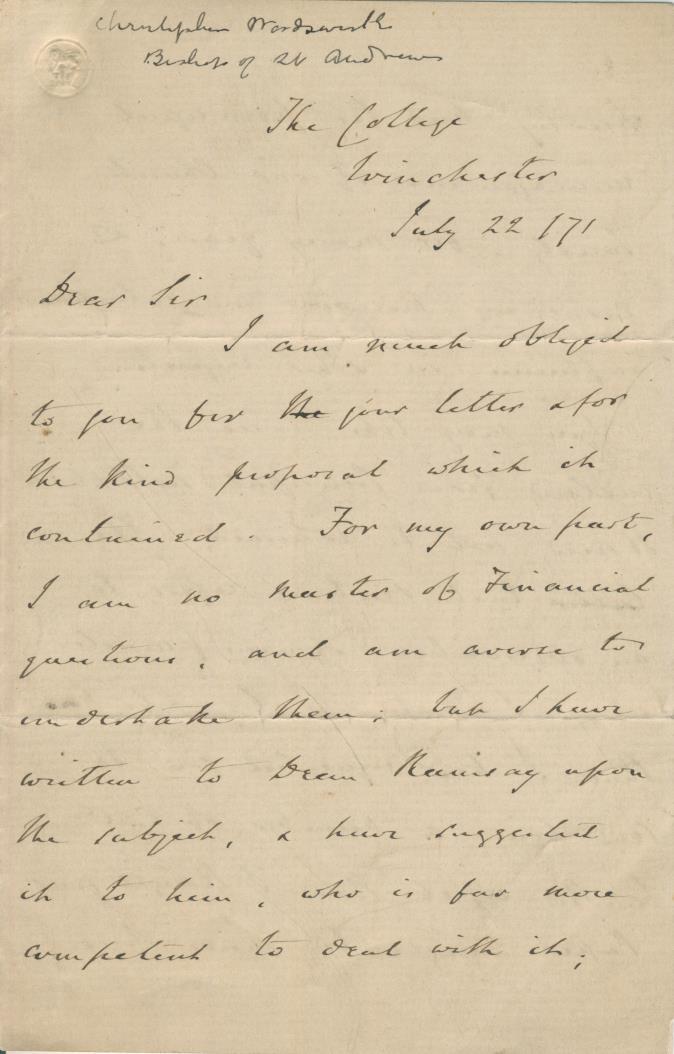 Christopher Wordsworth
Bishop of St Andrews
The College
Winchester
July 22 /71
Dear Sir
I am much obliged
to you for the your letter & for
the kind proposal which it
contained. For my own part,
I am no master of Financial
questions, and am averse to
undertake them; but I have
written to Dean Ramsay upon
the subject, & have suggested
it to him, who is far more
competent to deal with it;